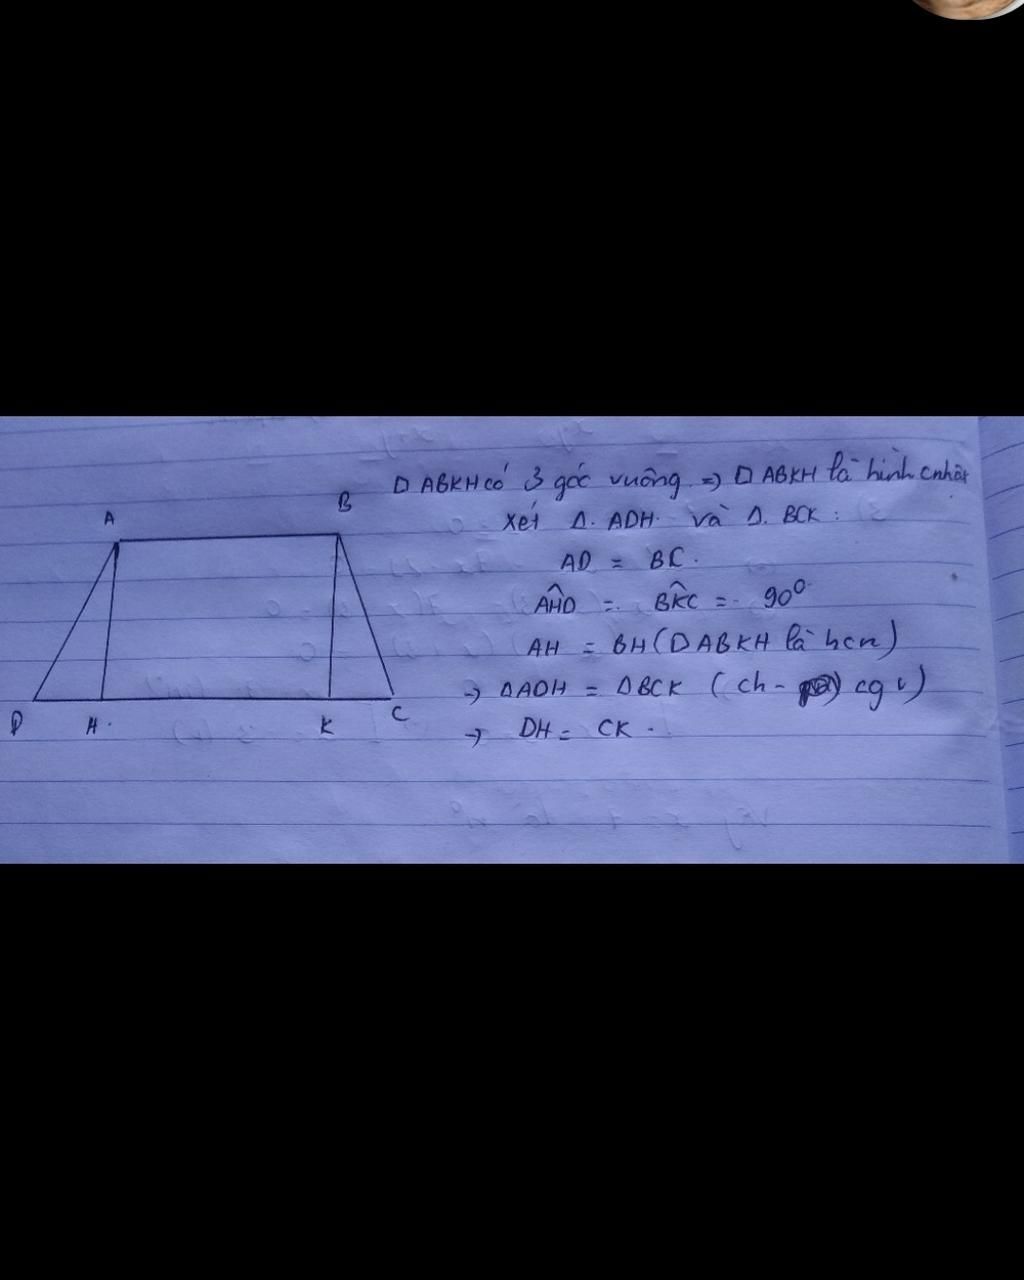 A
B
D
H
K
C
□ ABKH có 3 góc vuông => □ ABKH là hình cnhật
xét Δ. ADH và Δ. BCK:
AD = BC.
AĤD = BK̂C = 90⁰
AH = BH (□ ABKH là hcn)
→ ΔADH = ΔBCK (ch - cgv)
→ DH = CK.